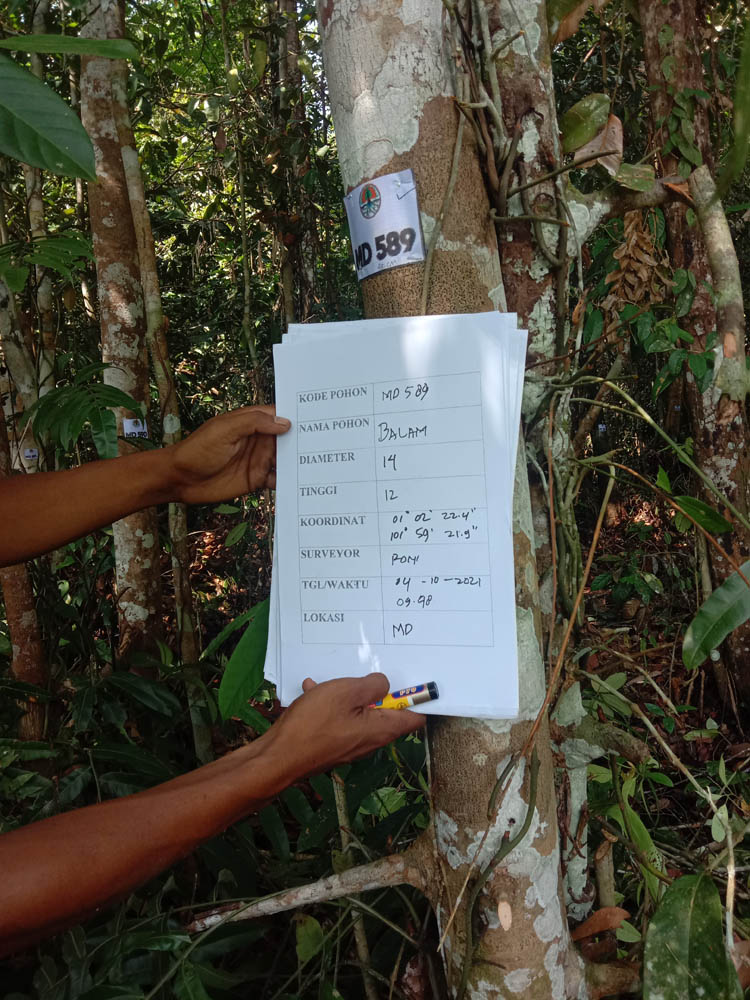 MD 589
KODE POHON MD 589
NAMA POHON BALAM
DIAMETER 14
TINGGI 12
KOORDINAT 01° 02' 22.4"
101° 59' 21.9"
SURVEYOR RONI
TGL/WAKTU 04 -10-2021
09.48
LOKASI MD